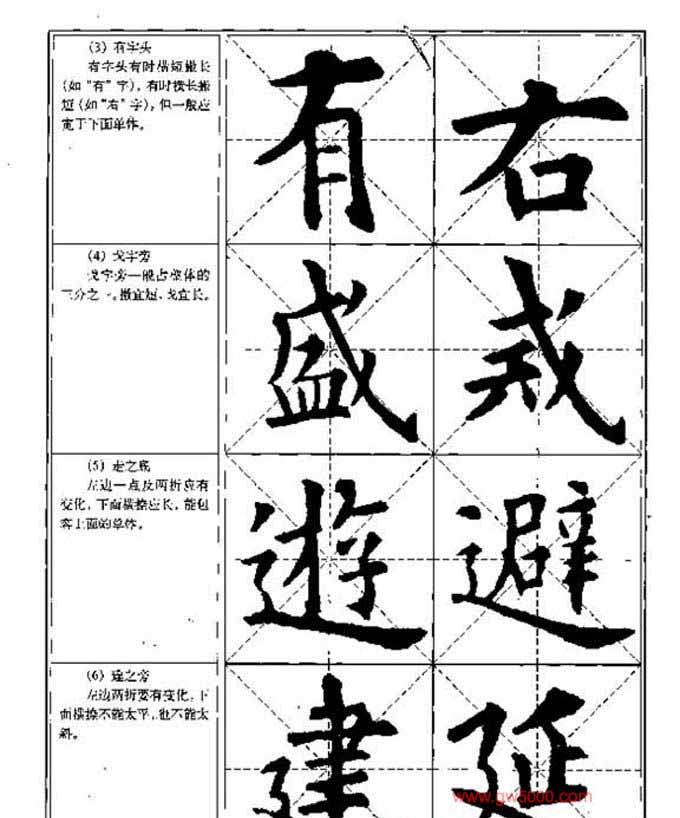 (3) 有字头
有字头有时横短撇长
(如“有”字),有时横长撇
短(如“右”字),但一般应
宽于下面单体。
有 右
(4) 戈字旁
戈字旁一般占整体的
三分之一。撇宜短、戈宜长。
盛 戒
(5) 走之底
左边一点及两折应有
变化,下面横捺应长,能包
容上面的单体。
遊 避
(6) 建之旁
左边两折要有变化,下
面横捺不能太平,也不能太
斜。
建 延
www.gw5000.com